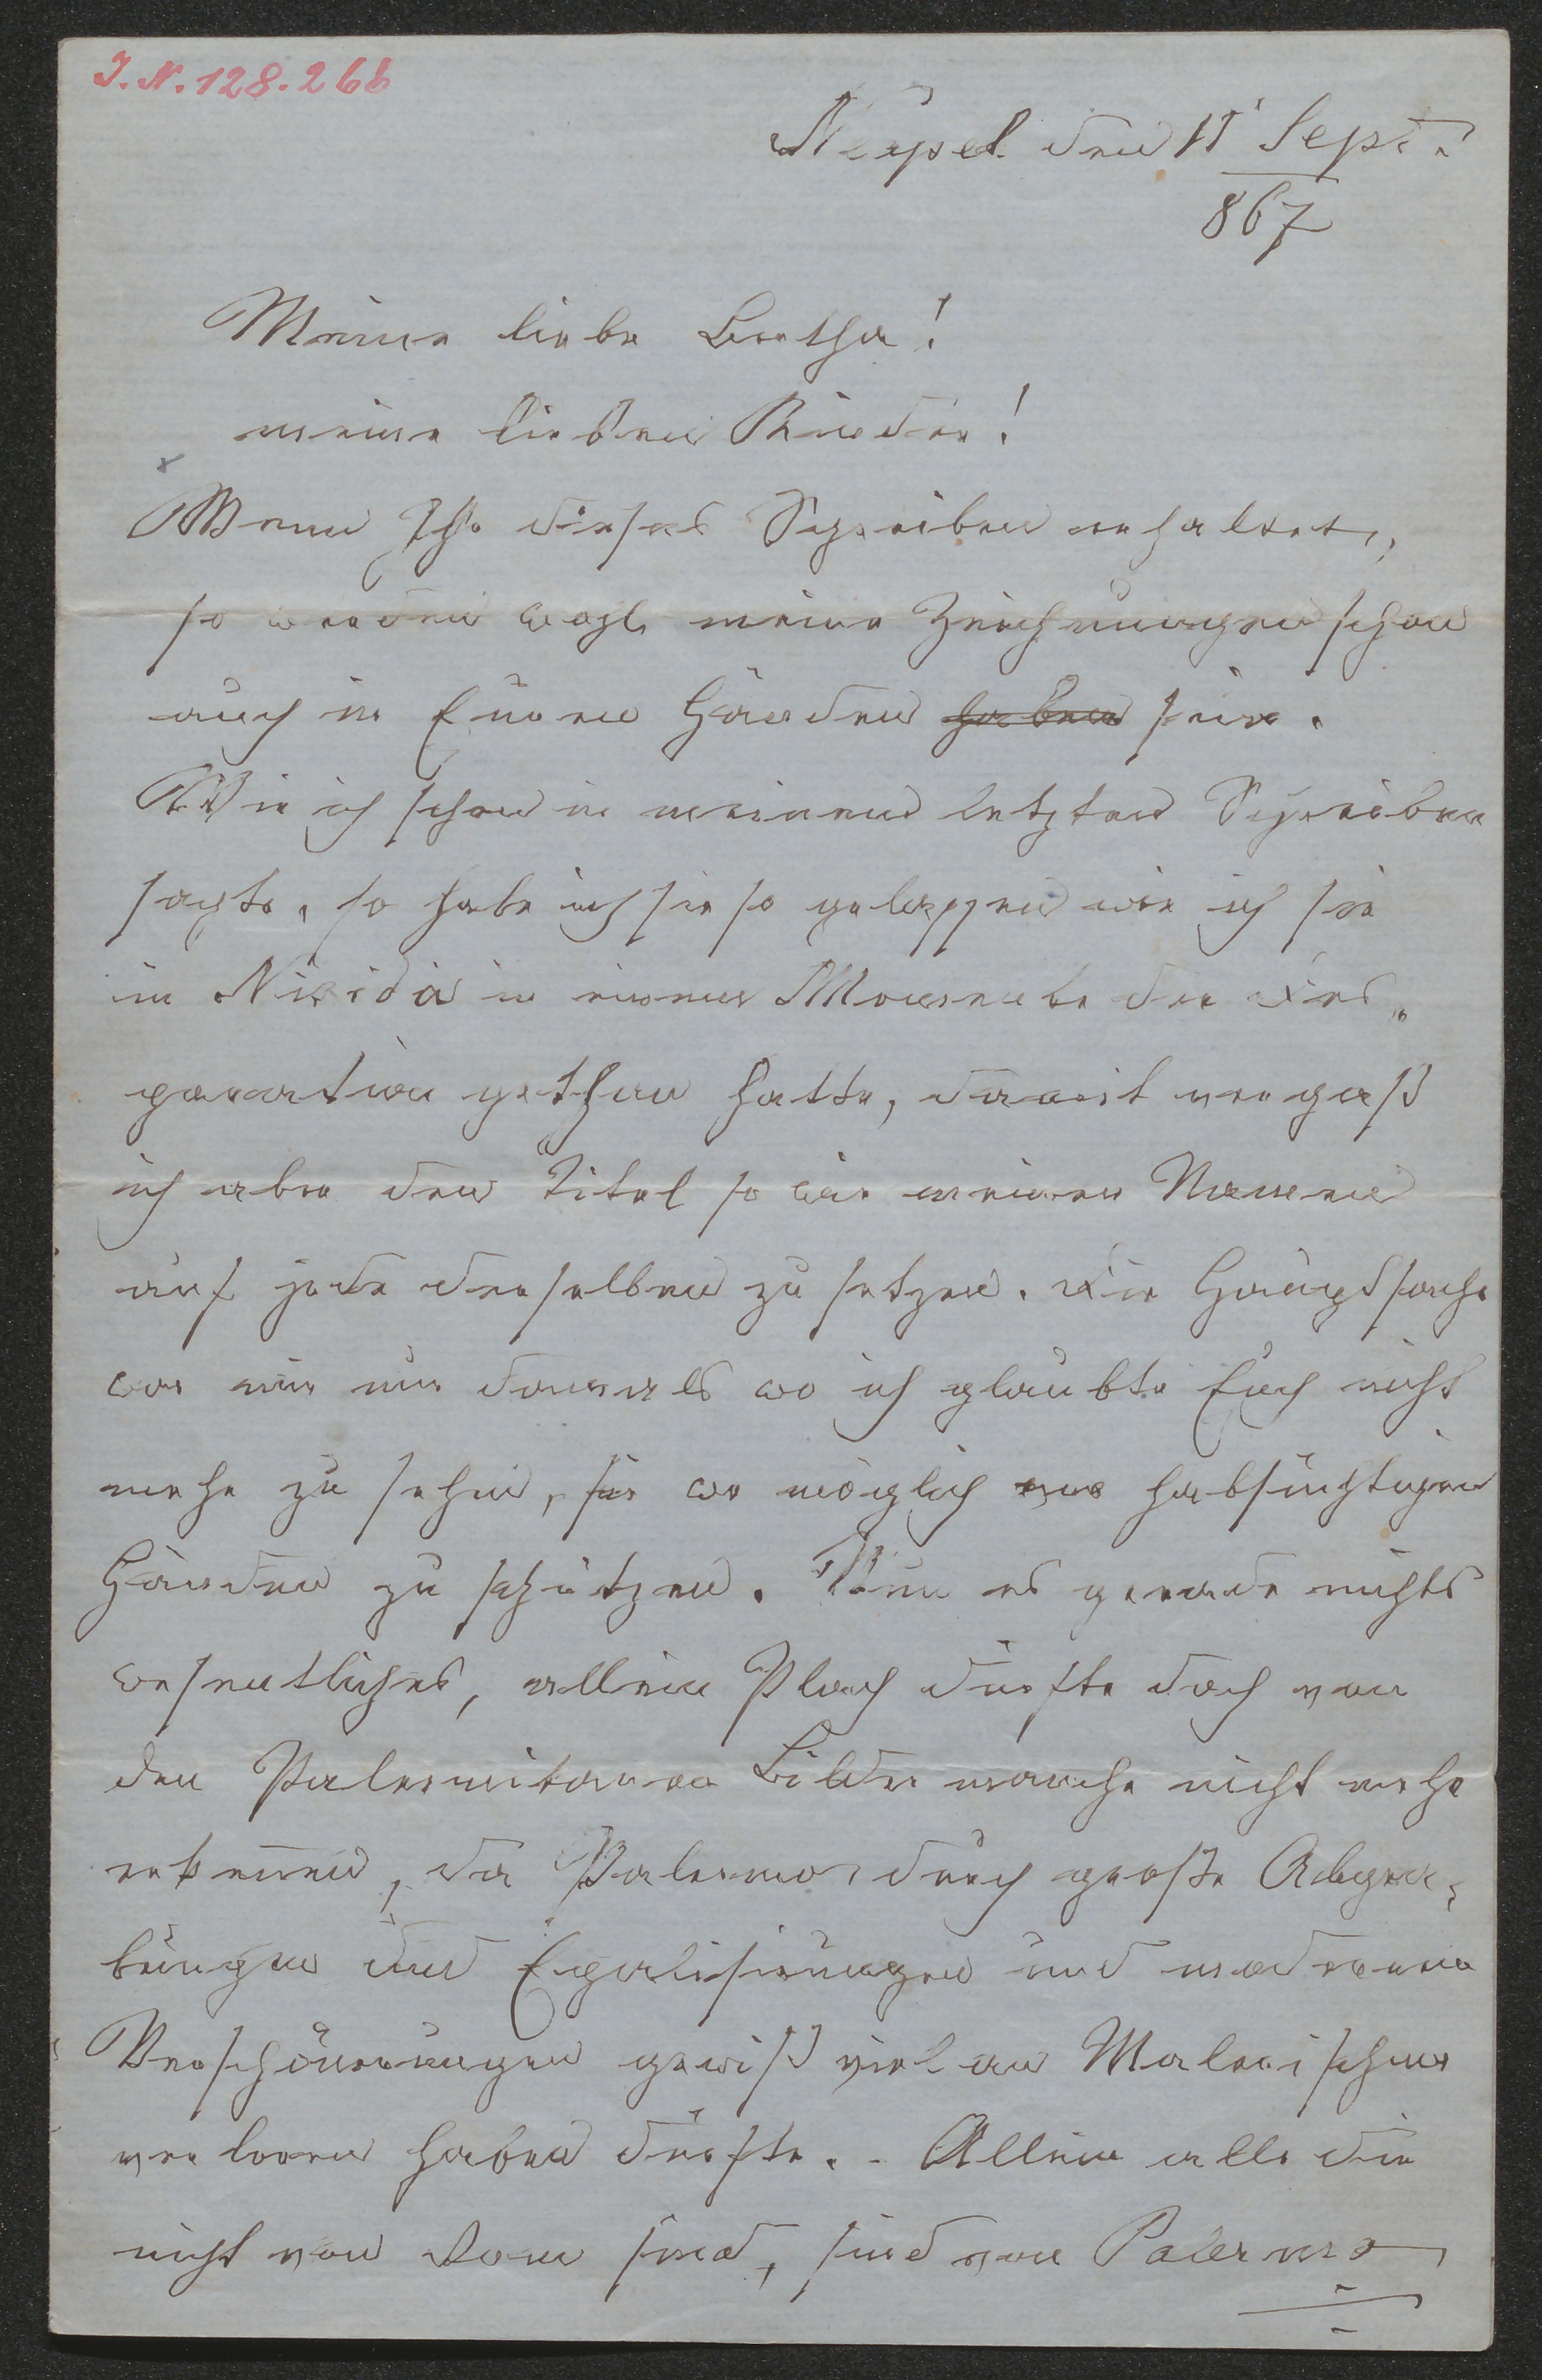 J.N. 128.266
Neapel den 11 Sept.
867
Meine liebe Bertha!
meine lieben Kinder!
Wenn Ihr dieses Schreiben erhaltet,
so werden wohl meine Zeichnungen schon
auch in Euren Händen haben sein.
Wie ich schon in meinem letzten Schreiben
sagte, so habe ich sie so gelassen wie ich sie
in Nisida in einem Momente der Des„
peration gethan hatte, damit vergaß
ich aber den Titel so wie meinen Namen
auf jede derselben zu setzen. Die Hauptsache
war mir nur damals wo ich glaubte Euch nicht
mehr zu sehen, sie wo möglich vor habsüchtigen
Händen zu schützen. Nun es gerade nichts
wesentliches, allein Plach dürfte doch von
den Palermitaner Bilder manche nicht mehr
erkennen, da Palermo durch große Abgra„
bungen und Egalisirungen und modernen
Verschönerungen gewiß viel an Malerischem
verloren haben dürfte. - Allein alle die
nicht von Rom sind, sind von Palermo